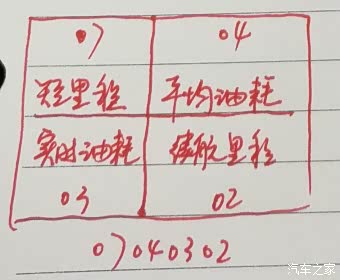 07 04
短里程 平均油耗
实时油耗 续航里程
03 02
07040302
汽车之家